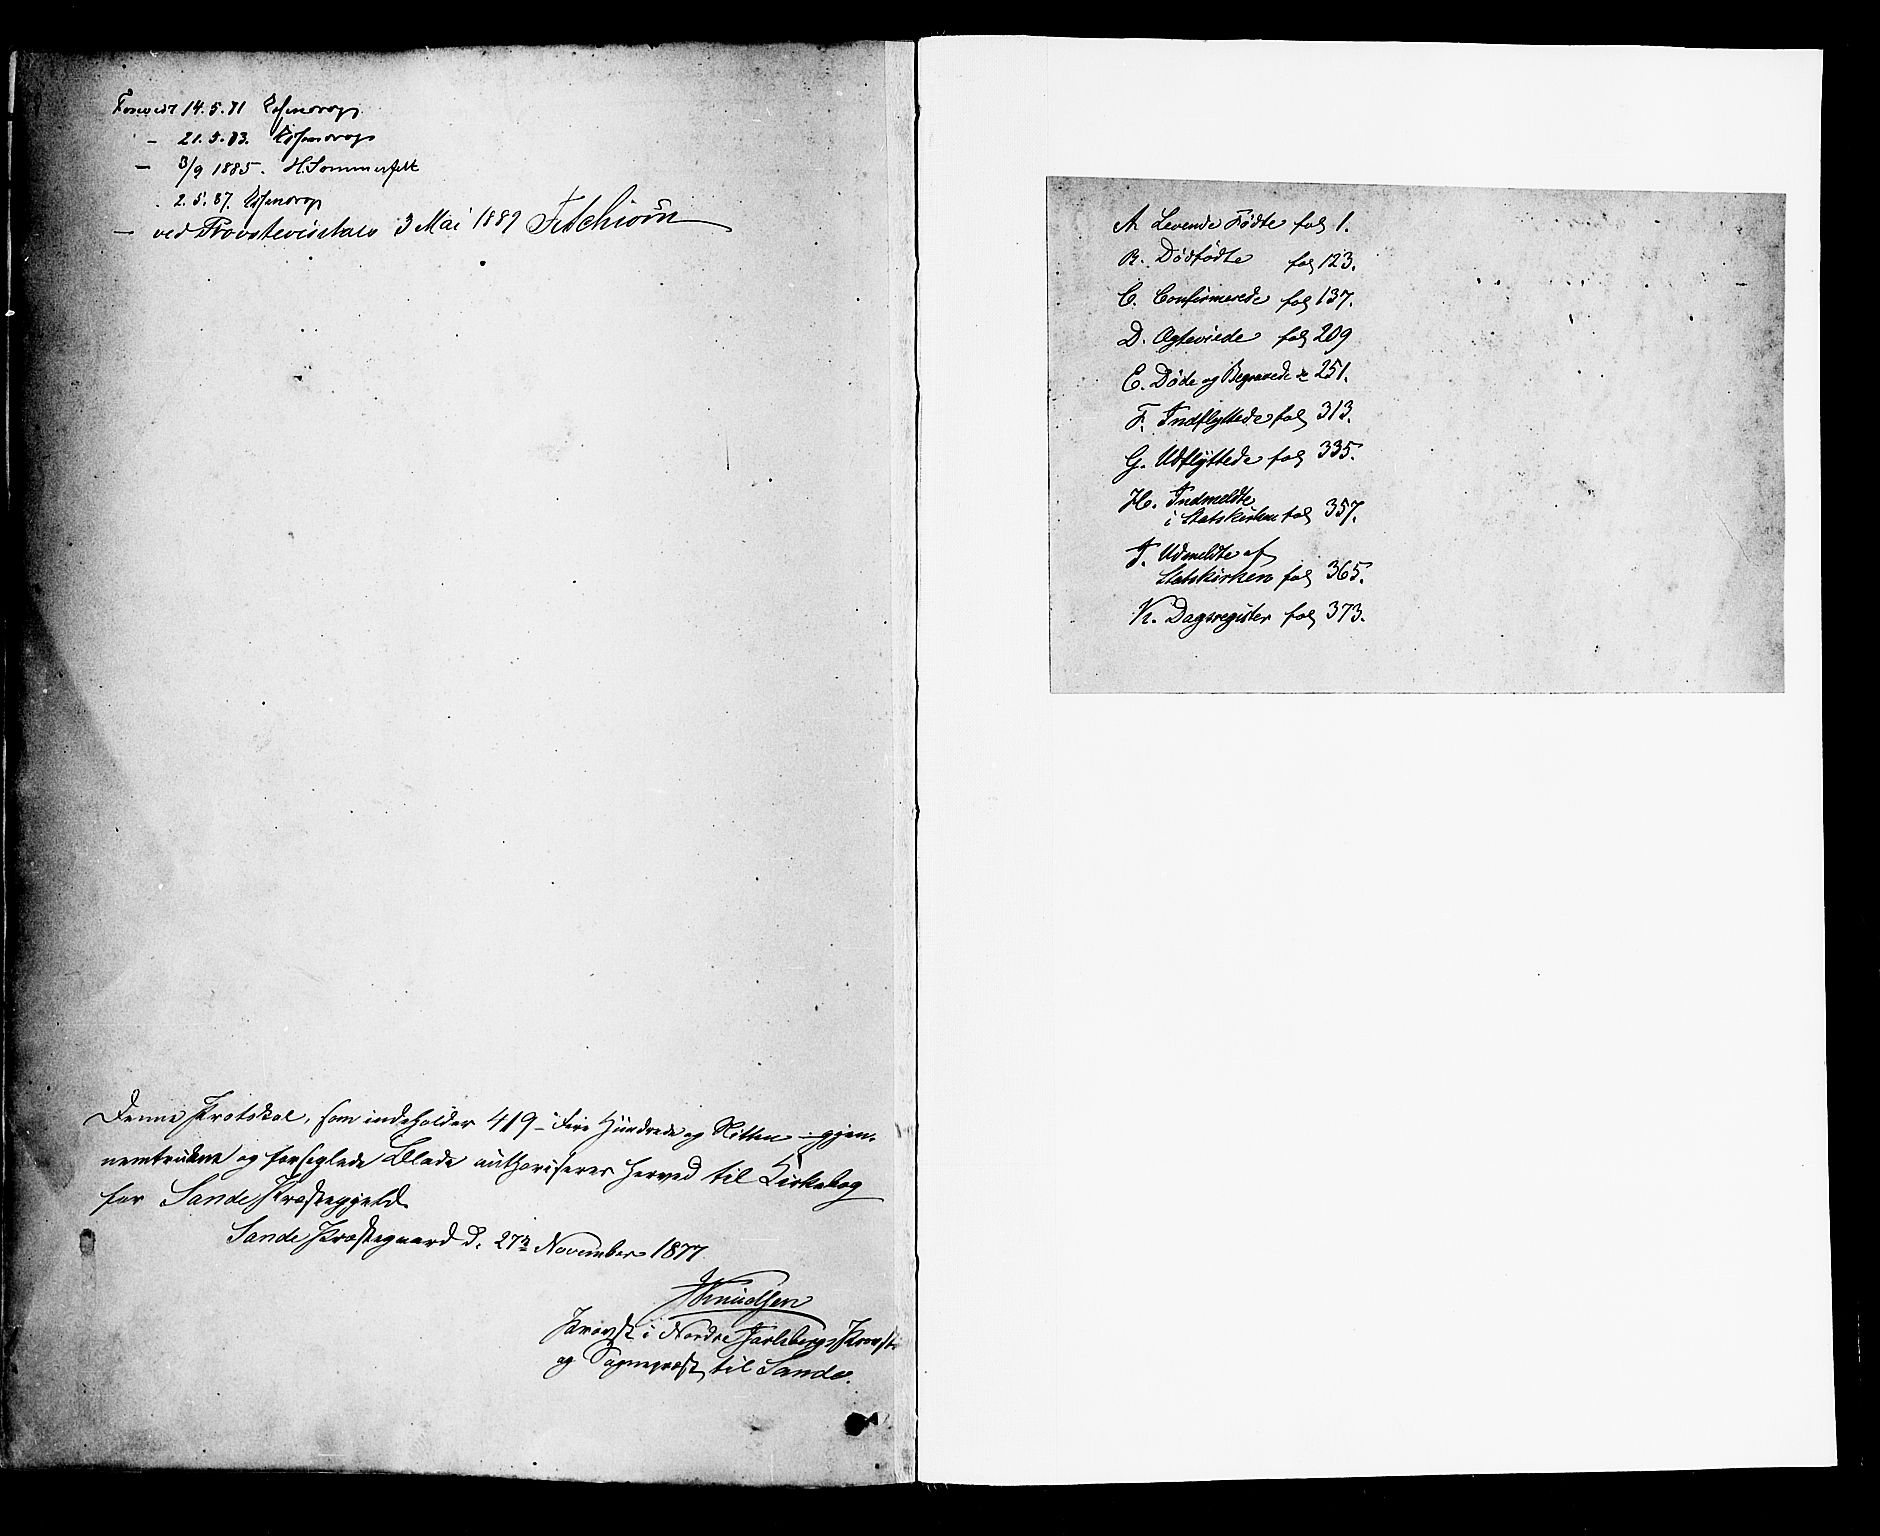 Forevist 14.5.81
— 21.5.83.
— 3/9 1885. H. Sommerfelt
2.5.87.
— ved Provstevisitats 3 Mai 1889 F. Schiörn
Denne Protokol, som indeholder 419 - Fire Hündrede og Nitten - gjen-
nemtrukne og forseglede Blade authoriseres herved til Kirkebog
for Sande Præstegjeld
Sande Præstegaard d. 27de November 1877
JKnudsen
Provst i Nordre Jarlsbergs Provsti
og Sognepræst til Sande.
A. Levende Fødte fol 1.
B. Dødfødte fol 123.
C. Confirmerede fol 137.
D. Ægteviede fol 209
E. Døde og Begravede 251.
F. Indflyttede fol 313.
G. Udflyttede fol 335.
H. Indmeldte
i Statskirken fol 357.
J. Udmeldte af
Statskirken fol 365.
K. Dagsregister fol 373.